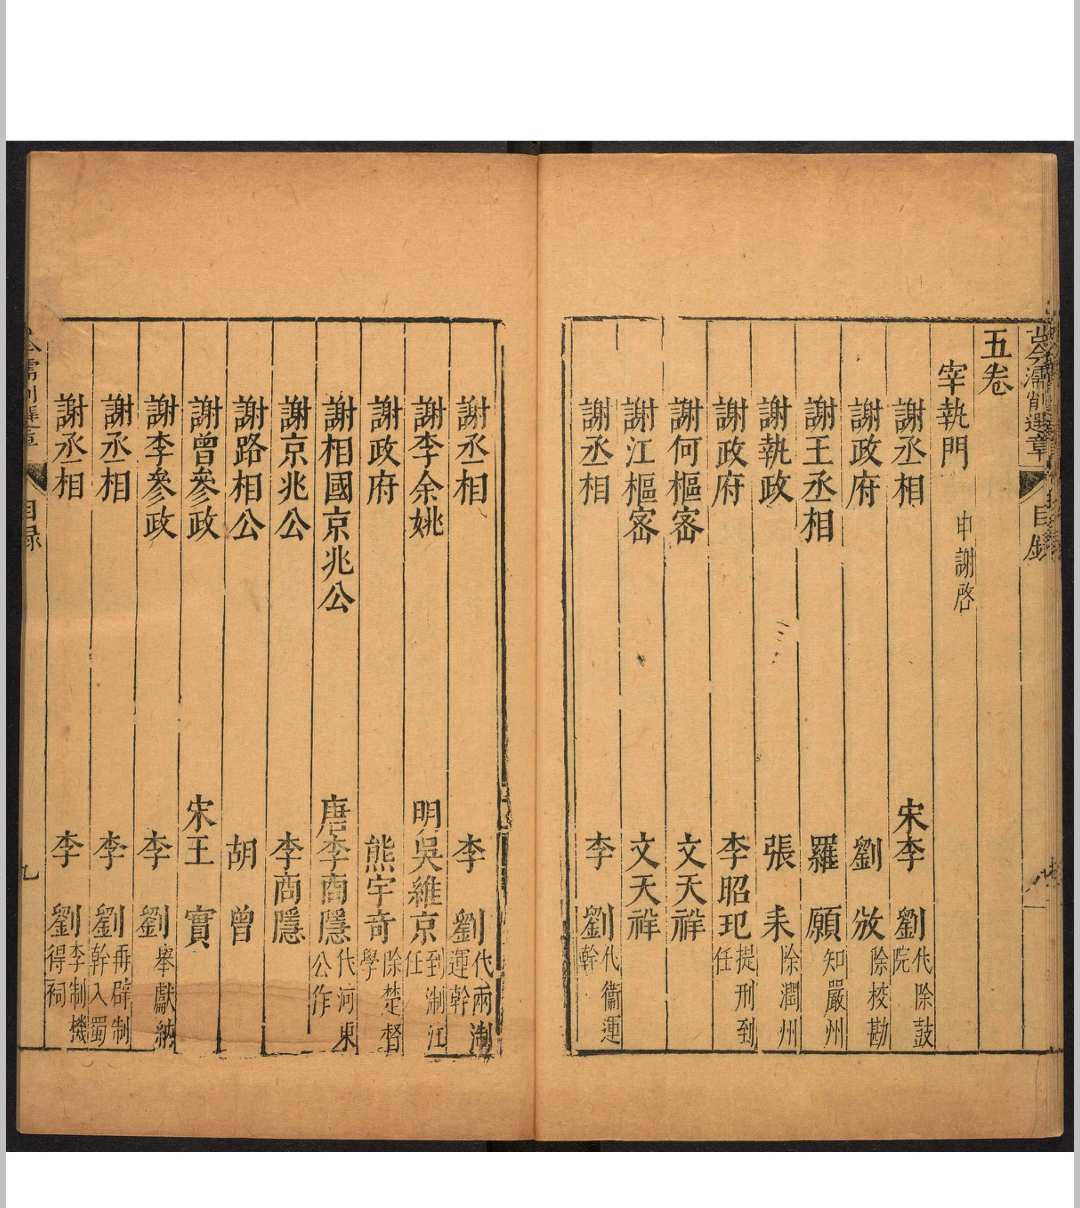 古今濡削選章 目錄
五卷
宰執門 申謝啓
謝丞相 宋李 劉 代除鼓院
謝政府 劉攽 除校勘
謝王丞相 羅願 知嚴州
謝執政 張耒 除潤州
謝政府 李昭玘 提刑到任
謝何樞密 文天祥
謝江樞密 文天祥
謝丞相 李 劉 代衞運幹
謝丞相 李 劉 代兩淛運幹
謝李余姚 明吳維京 到淛江任
謝政府 熊宇奇 除楚督學
謝相國京兆公 唐李商隱 代河東公作
謝京兆公 李商隱
謝路相公 胡曾
謝曾參政 宋王 實
謝李參政 李 劉 舉獻納
謝丞相 李 劉 再辟制幹入蜀
謝丞相 李 劉 李制機得祠
目録 九